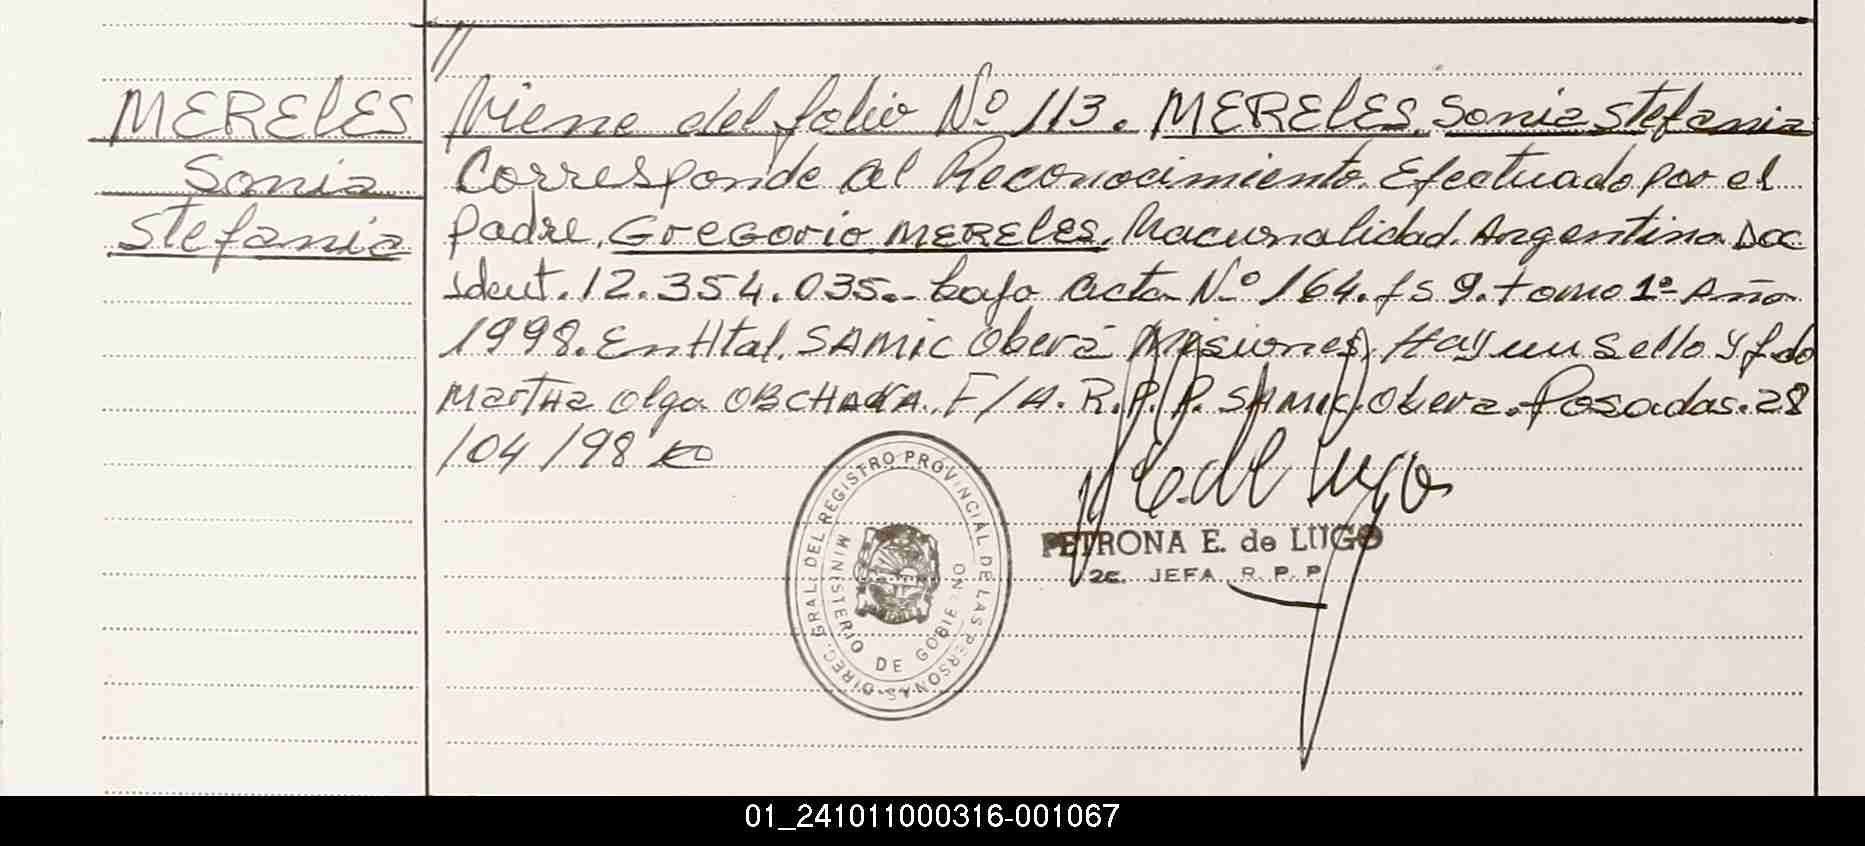 //
MERELES
Sonia
Stefania
Viene del folio Nº 113. MERELES, Sonia Stefania
Corresponde al Reconocimiento. Efectuado por el
padre, GREGORIO MERELES, Nacionalidad. Argentina Doc
ident. 12.354.035.- bajo acta Nº 164. fs 9. tomo 1º Año
1998. En Htal. SAMIC Oberá Misiones, Hay un sello y fdo
Martha Olga F/A. R.P.P. SAMIC. Obera. Posadas. 28
/04/98
DIREC. GRAL. DEL REGISTRO PROVINCIAL DE LAS PERSONAS
MINISTERIO DE GOBIERNO
PETRONA E. de LUGO
2c. JEFA R. P. P.
01_241011000316-001067